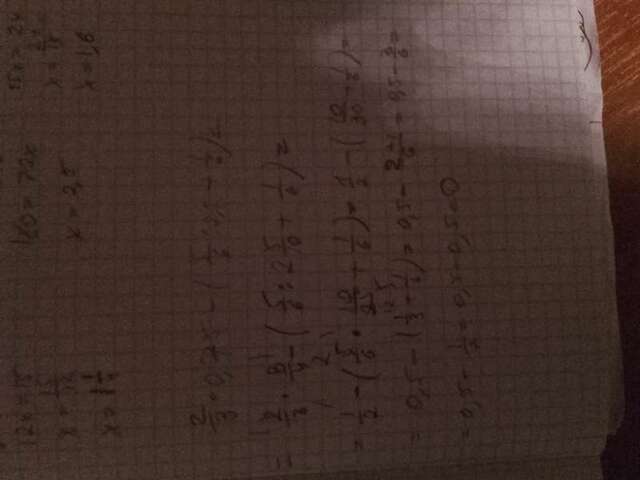 12x = 15 180 = 72x 15x = 24
x = 15/12 x = 2,5
x = 1 1/4 x = 1,6
2/3 · 0,75 - ( 5/6 : 2,5 + 1/6 ) =
= 2/3 · 3/4 - ( 5/6 : 2 5/10 + 1/6 ) =
= 1/2 - ( 5/6 · 10/25 + 1/6 ) = 1/2 - ( 10/30 + 1/6 ) =
= 0,5 - ( 1/3 + 1/6 ) = 0,5 - 2+1/6 = 0,5 - 3/6 =
= 0,5 - 1/2 = 0,5 - 0,5 = 0